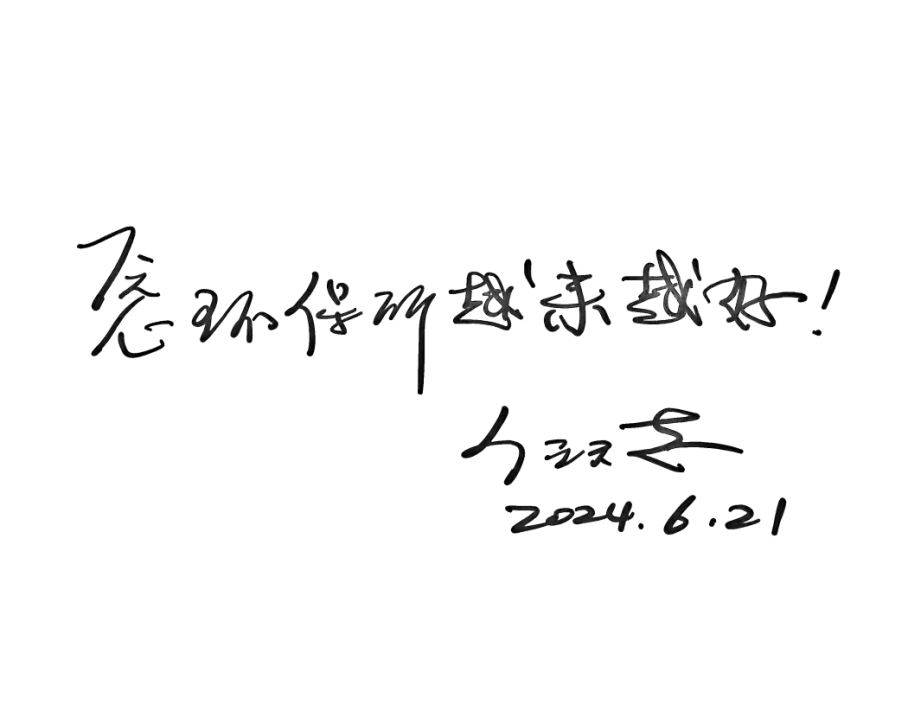 愿环保所越来越好!
2024.6.21